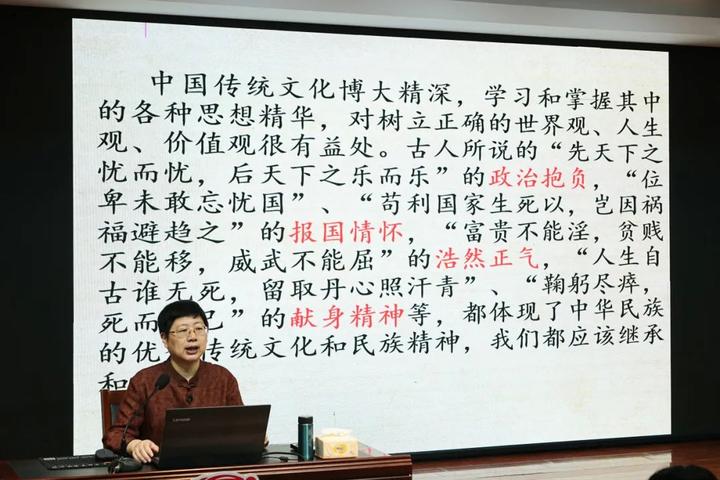 中国传统文化博大精深，学习和掌握其中
的各种思想精华，对树立正确的世界观、人生
观、价值观很有益处。古人所说的“先天下之
忧而忧，后天下之乐而乐”的政治抱负，“位
卑未敢忘忧国”、“苟利国家生死以，岂因祸
福避趋之”的报国情怀，“富贵不能淫，贫贱
不能移，威武不能屈”的浩然正气，“人生自
古谁无死，留取丹心照汗青”、“鞠躬尽瘁，
死而 已”的献身精神等，都体现了中华民族
的优 传统文化和民族精神，我们都应该继承
和
Lenovo